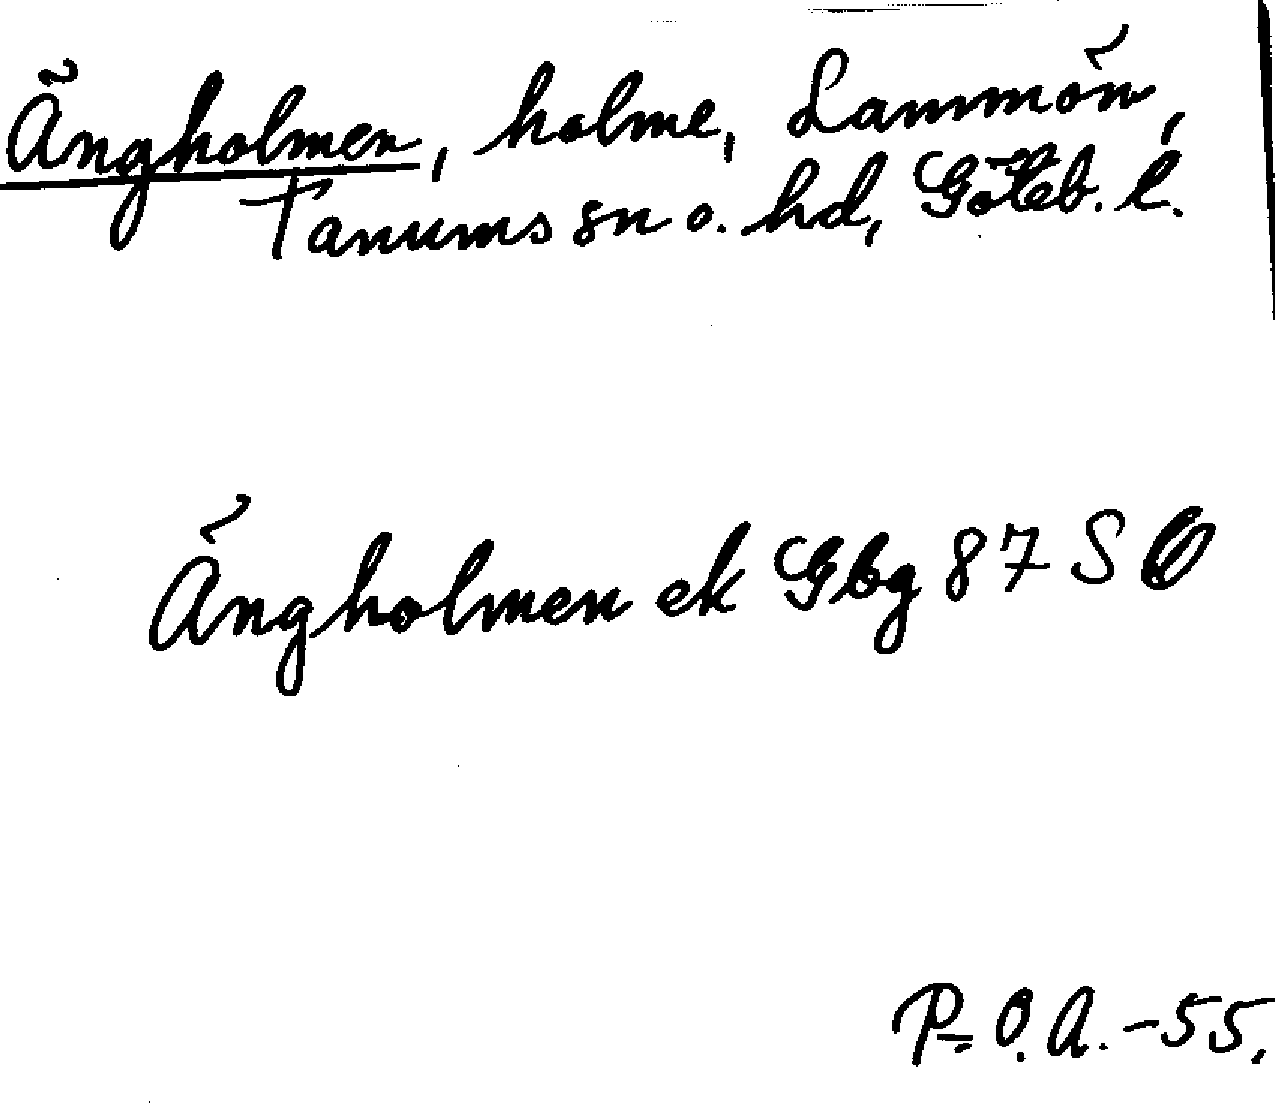 Ängholmen, holme, Lammön,
Tanums sn o. hd, Göteb. l.
Ängholmen ek Gbg 87 SO
P.-O. A. -55.